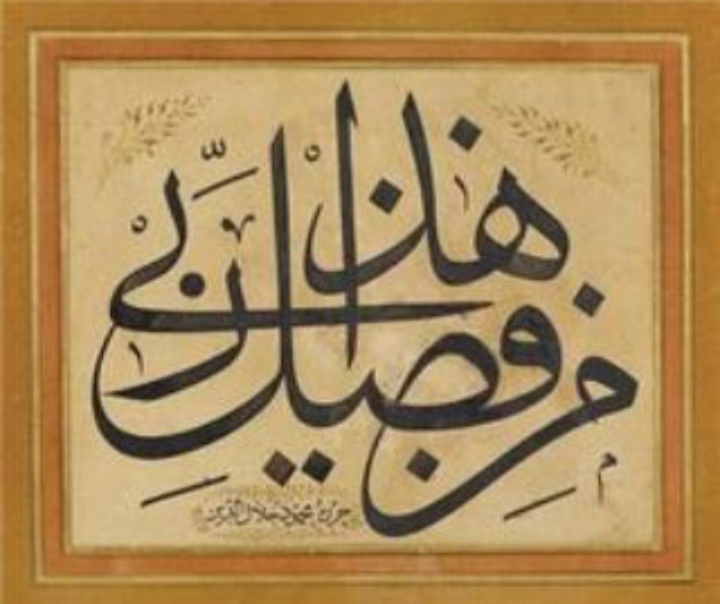 هذا من فضل ربي
حرره محمود جلال الدين